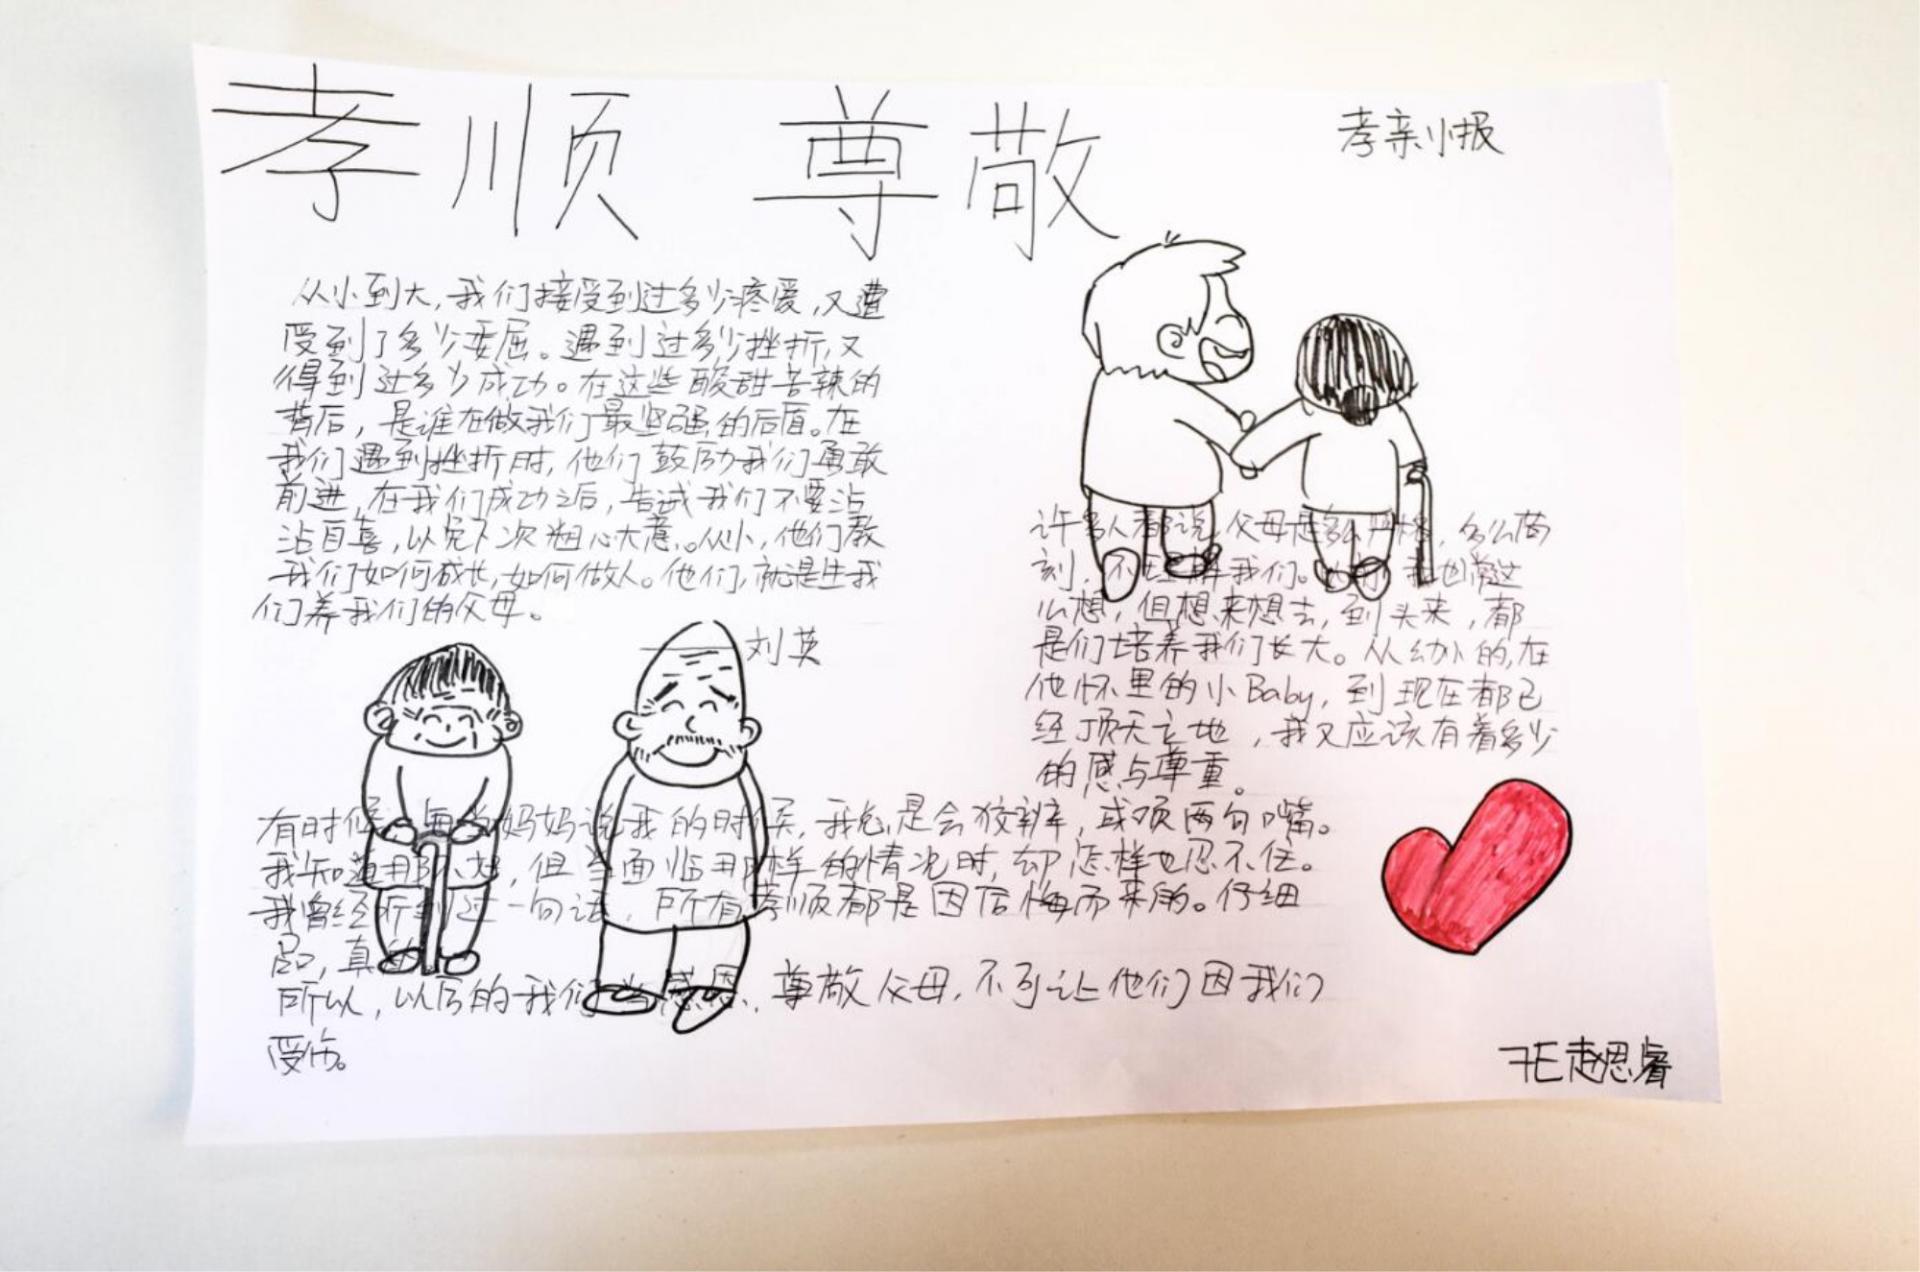 孝顺 尊敬
孝亲小报
从小到大，我们接受到过多少疼爱，又遭
受到了多少委屈。遇到过多少挫折，又
得到过多少成功。在这些酸甜苦辣的
背后，是谁在做我们最坚强的后盾。在
我们遇到挫折时，他们鼓励我们勇敢
前进，在我们成功之后，告诫我们不要沾
沾自喜，以免下次粗心大意。从小，他们教
我们如何成长，如何做人。他们，就是生我
们养我们的父母。
刘英
许多人都说，父母是多么严格，多么苛
刻，不理解我们。我也常这
么想，但想来想去，到头来，都
是们培养我们长大。从幼小的，在
他怀里的小Baby，到现在都已
经顶天立地，我又应该有着多少
的感与尊重。
有时候，每当妈妈说我的时候，我总是会狡辩，或顶两句嘴。
我知道那不对，但当面临那样的情况时，却怎样也忍不住。
我曾经听到过一句话，所有孝顺都是因后悔而来的。仔细
品，真的
所以，以后的我们当感恩，尊敬父母，不可让他们因我们
受伤。
7E赵思睿